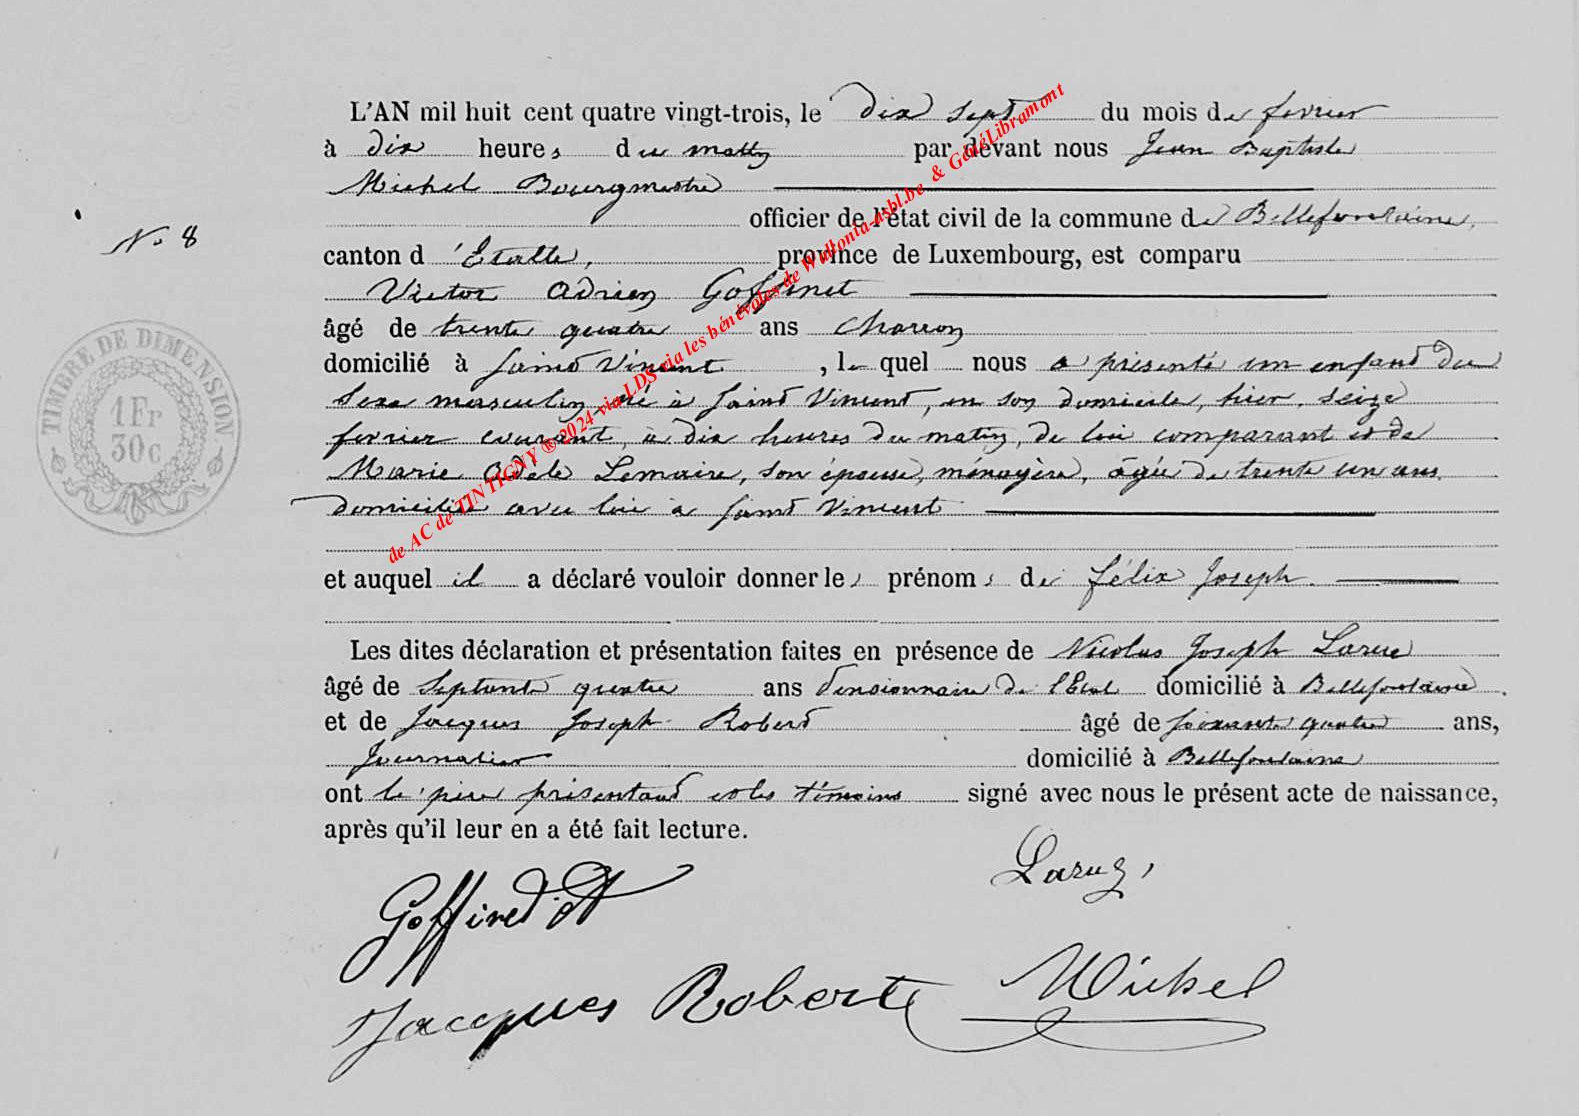 L'AN mil huit cent quatre vingt-trois, le dix sept du mois de fevrier
à dix heures du matin par devant nous Jean Baptiste
Michel Bourgmestre
officier de l'état civil de la commune de Bellefontaine,
N° 8
canton d'Etalle, province de Luxembourg, est comparu
Victor Adrien Goffinet
âgé de trente quatre ans Charron
domicilié à Saint Vincent, lequel nous a présenté un enfant du
Sexe masculin, né à Saint Vincent, en son domicile, hier seize
fevrier courant, à dix heures du matin, de lui comparant et de
Marie Adèle Lemaire, son épouse, ménagère, âgée de trente un ans,
domiciliée avec lui à Saint Vincent
et auquel il a déclaré vouloir donner les prénoms de Félix Joseph.
Les dites déclaration et présentation faites en présence de Nicolas Joseph Larue
âgé de Septante quatre ans Pensionnaire de l'Etat domicilié à Bellefontaine
et de Jacques Joseph Robert âgé de soixante quatre ans,
Journalier domicilié à Bellefontaine
ont le père présentant et les témoins signé avec nous le présent acte de naissance,
après qu'il leur en a été fait lecture.
Larue,
Goffinet
Jacques Robert Michel
TIMBRE DE DIMENSION
1 Fr
30 c
de AC de TINTIGNY ®2024 via LDS via les bénévoles de Wallonia-asbl.be & GénéLibramont